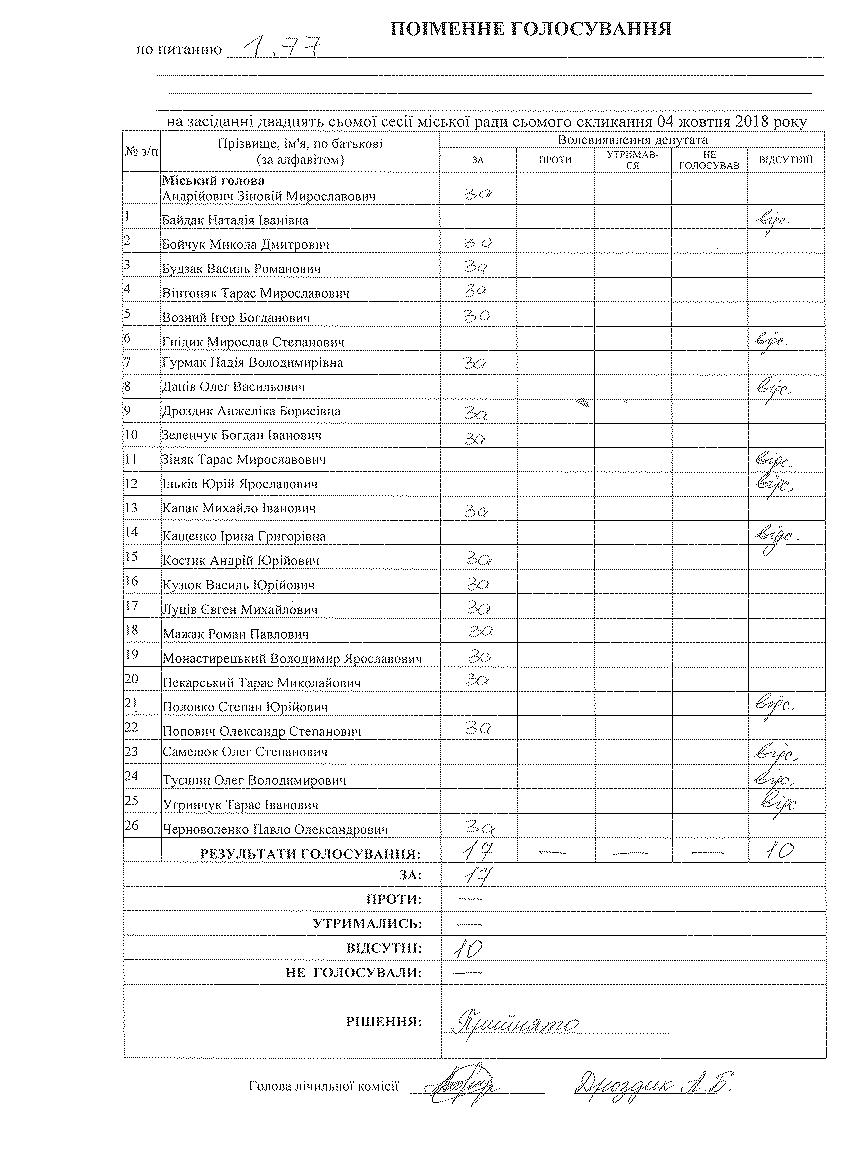 ПОІМЕННЕ ГОЛОСУВАННЯ
по питанню 1.77
на засіданні двадцять сьомої сесії міської ради сьомого скликання 04 жовтня 2018 року
№ з/п Прізвище, ім'я, по батькові (за алфавітом) Волевиявлення депутата
ЗА ПРОТИ УТРИМАВ-СЯ НЕ ГОЛОСУВАВ ВІДСУТНІЙ
Міський голова
Андрійович Зіновій Мирославович за
1 Байдак Наталія Іванівна відс.
2 Бойчук Микола Дмитрович за
3 Будзак Василь Романович за
4 Вінтоняк Тарас Мирославович за
5 Возний Ігор Богданович за
6 Гнідик Мирослав Степанович відс.
7 Гурмак Надія Володимирівна за
8 Данів Олег Васильович відс.
9 Дроздик Анжеліка Борисівна за
10 Зеленчук Богдан Іванович за
11 Зіняк Тарас Мирославович відс.
12 Ільків Юрій Ярославович відс.
13 Капак Михайло Іванович за
14 Кащенко Ірина Григорівна відс.
15 Костик Андрій Юрійович за
16 Кузюк Василь Юрійович за
17 Луців Євген Михайлович за
18 Мажак Роман Павлович за
19 Монастирецький Володимир Ярославович за
20 Пекарський Тарас Миколайович за
21 Половко Степан Юрійович відс.
22 Попович Олександр Степанович за
23 Самелюк Олег Степанович відс.
24 Тусшин Олег Володимирович відс.
25 Угринчук Тарас Іванович відс
26 Черноволенко Павло Олександрович за
РЕЗУЛЬТАТИ ГОЛОСУВАННЯ: 17 — — — 10
ЗА: 17
ПРОТИ: —
УТРИМАЛИСЬ: —
ВІДСУТНІ: 10
НЕ ГОЛОСУВАЛИ: —
РІШЕННЯ: Прийнято
Голова лічильної комісії Дроздик А.Б.